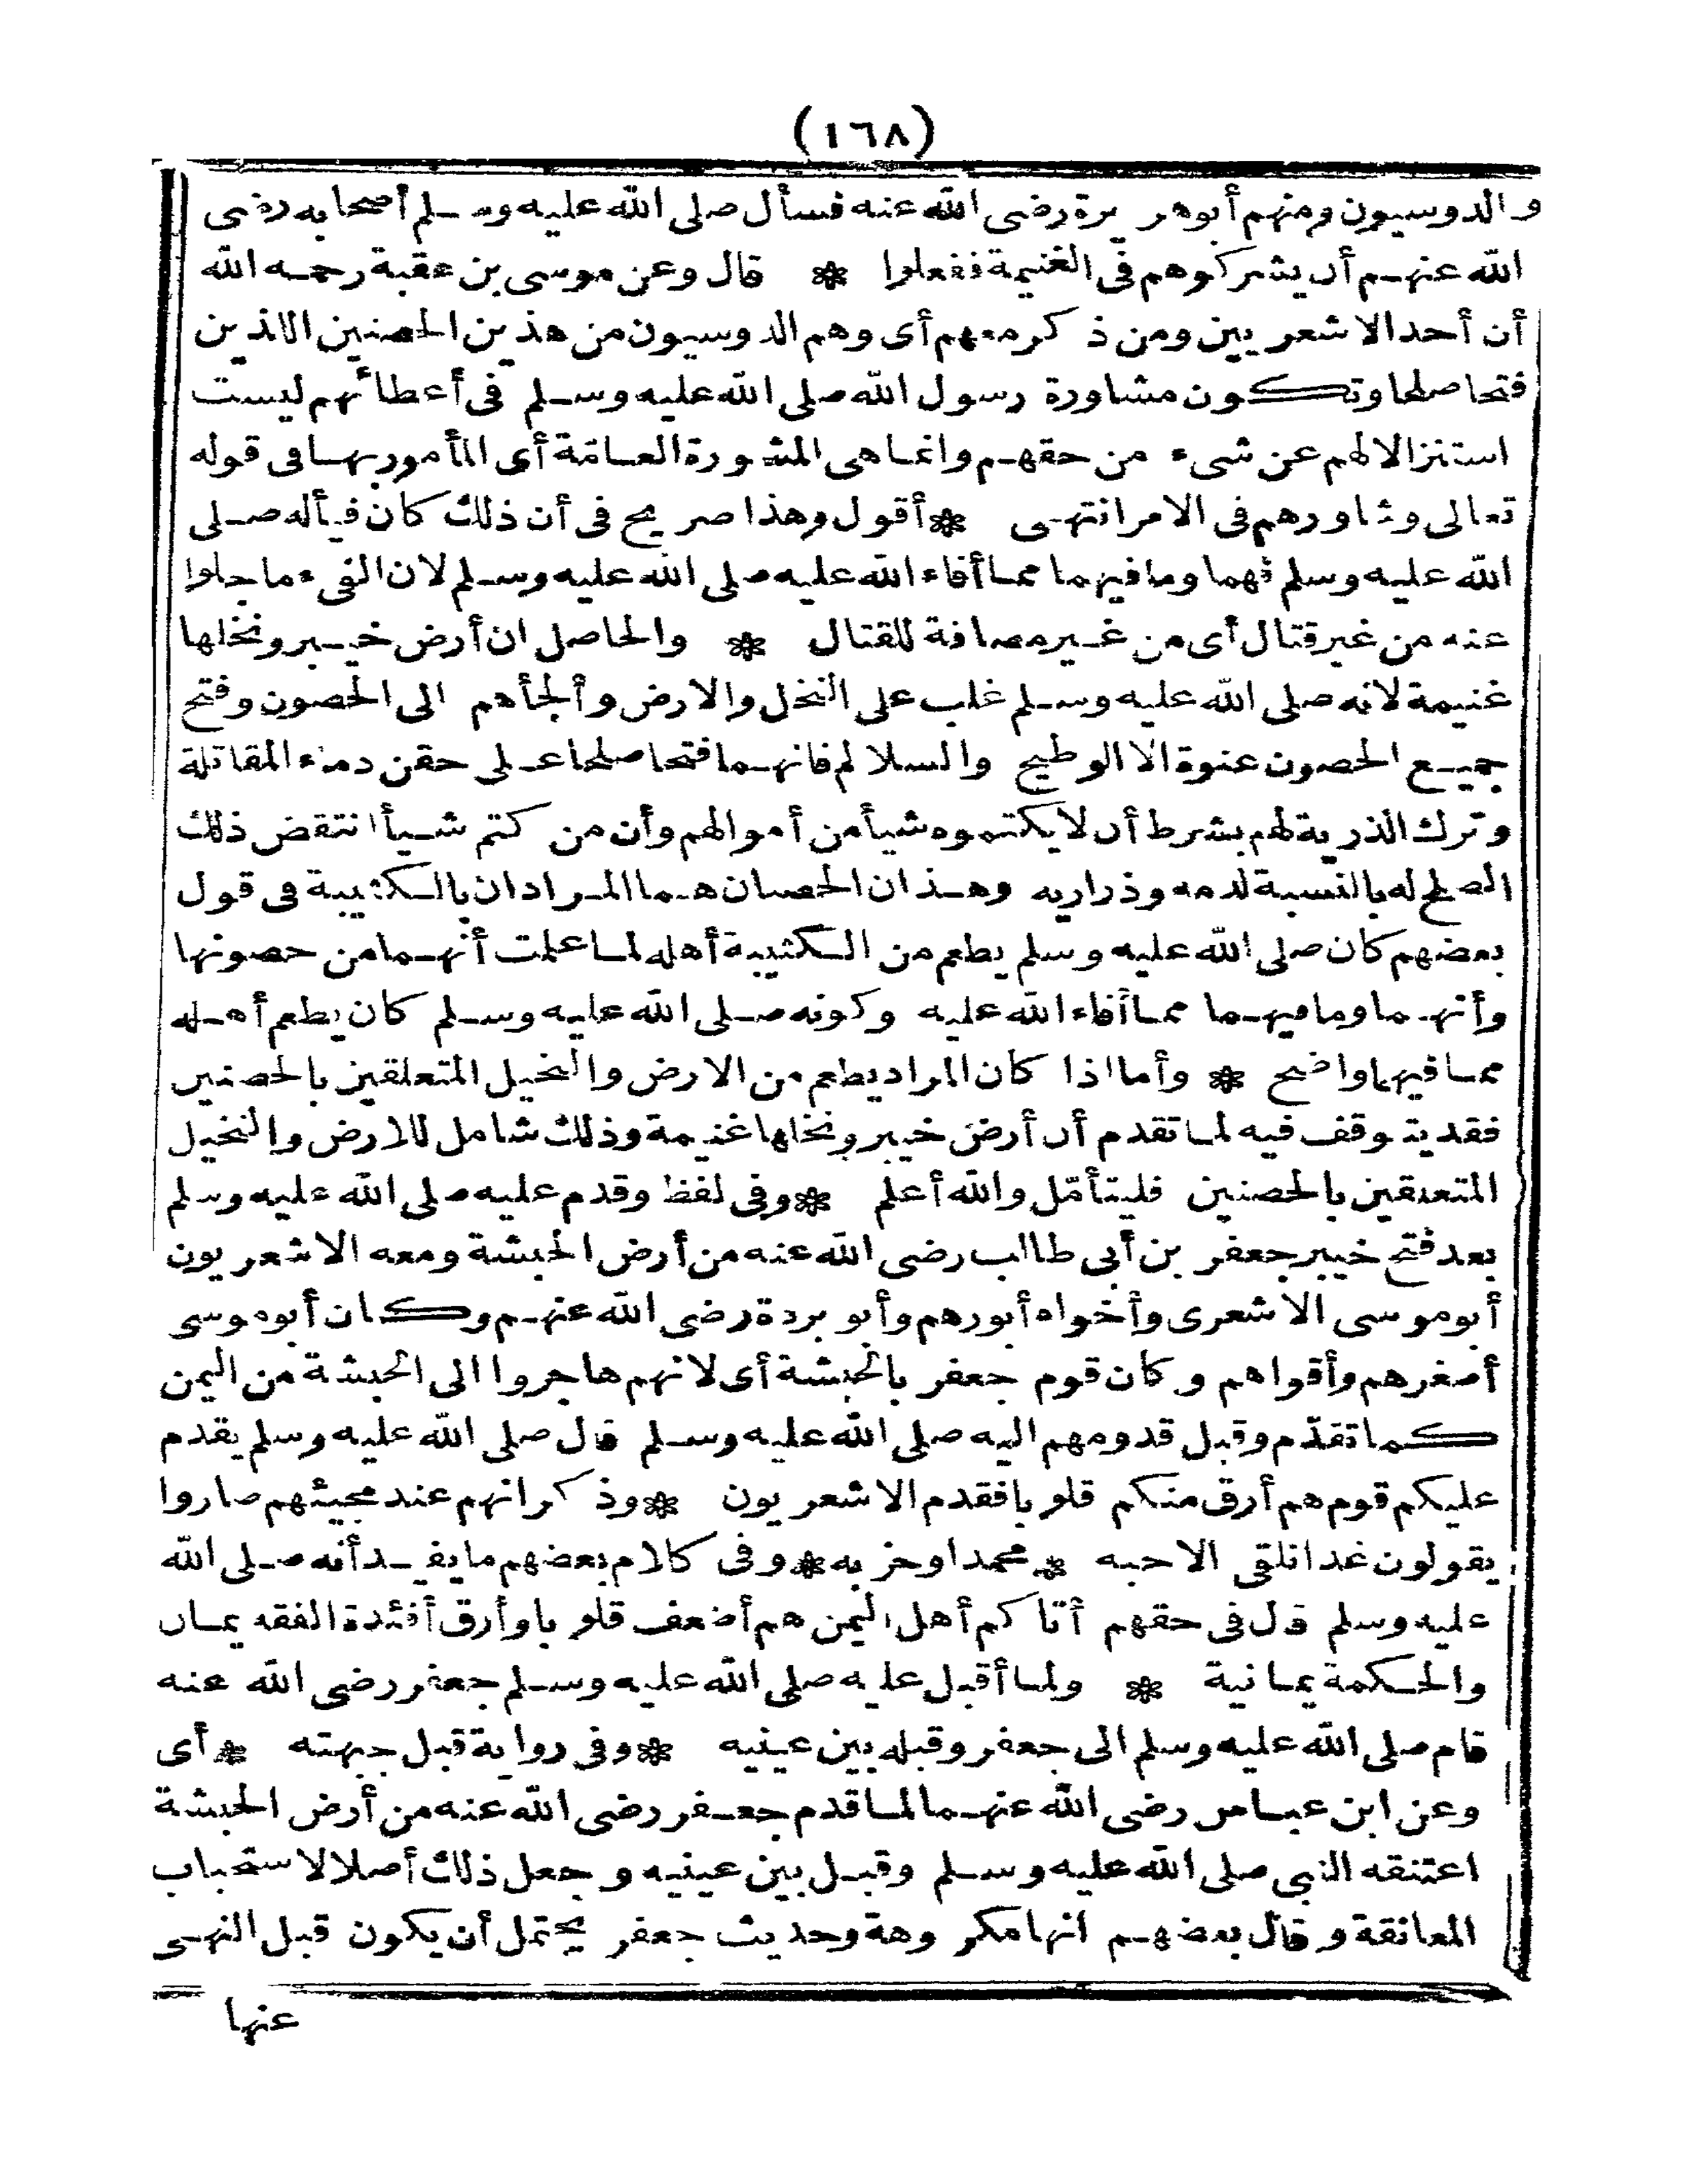 (١٦٨)
والدوسيون ومنهم أبوهريرة رضى الله عنه فسأل صلى الله عليه وسلم أصحابه رضى
الله عنهم أن يشركوهم فى الغنيمة ففعلوا * قال وعن موسى بن عقبة رحمه الله
أن أحد الاشعريين ومن ذكر معهم أى وهم الدوسيون من هذين الحصنين اللذين
فتحا صلحا وتكون مشاورة رسول الله صلى الله عليه وسلم فى أعطائهم ليست
استنزالا لهم عن شىء من حقهم وانما هى المشورة العامّة أى المأمور بها فى قوله
تعالى وشاورهم فى الامر انتهى * أقول وهذا صريح فى أن ذلك كان فيأله صلى
الله عليه وسلم فهما وما فيهما مما أفاء الله عليه صلى الله عليه وسلم لان الفىء ما جلوا
عنه من غير قتال أى من غير مصافة للقتال * والحاصل ان أرض خيبر ونخلها
غنيمة لانه صلى الله عليه وسلم غلب على النخل والارض وألجأهم الى الحصون وفتح
جميع الحصون عنوة الا الوطيح والسلالم فانهما فتحا صلحا على حقن دماء المقاتلة
وترك الذرية لهم بشرط أن لا يكتموه شيأ من أموالهم وأن من كتم شيأ انتقض ذلك
الصلح له بالنسبة لدمه وذراريه وهذان الحصنان هما المرادان بالكثيبة فى قول
بعضهم كان صلى الله عليه وسلم يطعم من الكثيبة أهله لما علمت أنهما من حصونها
وأنهما وما فيهما مما أفاء الله عليه وكونه صلى الله عليه وسلم كان يطعم أهله
مما فيهما واضح * وأما اذا كان المراد يطعم من الارض والنخيل المتعلقين بالحصنين
فقد يتوقف فيه لما تقدم أن أرض خيبر ونخلها غنيمة وذلك شامل للارض والنخيل
المتعلقين بالحصنين فليتأمّل والله أعلم * وفى لفظ وقدم عليه صلى الله عليه وسلم
بعد فتح خيبر جعفر بن أبى طالب رضى الله عنه من أرض الحبشة ومعه الاشعريون
أبوموسى الاشعرى وأخواه أبورهم وأبو بردة رضى الله عنهم وكان أبوموسى
أصغرهم وأقواهم وكان قوم جعفر بالحبشة أى لانهم هاجروا الى الحبشة من اليمن
كما تقدّم وقبل قدومهم اليه صلى الله عليه وسلم قال صلى الله عليه وسلم يقدم
عليكم قوم هم أرق منكم قلوبا فقدم الاشعريون * وذكر انهم عند مجيئهم صاروا
يقولون غدا نلقى الاحبه * محمدا وحزبه * وفى كلام بعضهم ما يفيد أنه صلى الله
عليه وسلم قال فى حقهم أتاكم أهل اليمن هم أضعف قلوبا وأرق أفئدة الفقه يمان
والحكمة يمانية * ولما أقبل عليه صلى الله عليه وسلم جعفر رضى الله عنه
قام صلى الله عليه وسلم الى جعفر وقبله بين عينيه * وفى رواية قبل جبهته * أى
وعن ابن عباس رضى الله عنهما لما قدم جعفر رضى الله عنه من أرض الحبشة
اعتنقه النبى صلى الله عليه وسلم وقبل بين عينيه وجعل ذلك أصلا لاستحباب
المعانقة وقال بعضهم انها مكروهة وحديث جعفر يحتمل أن يكون قبل النهى
عنها